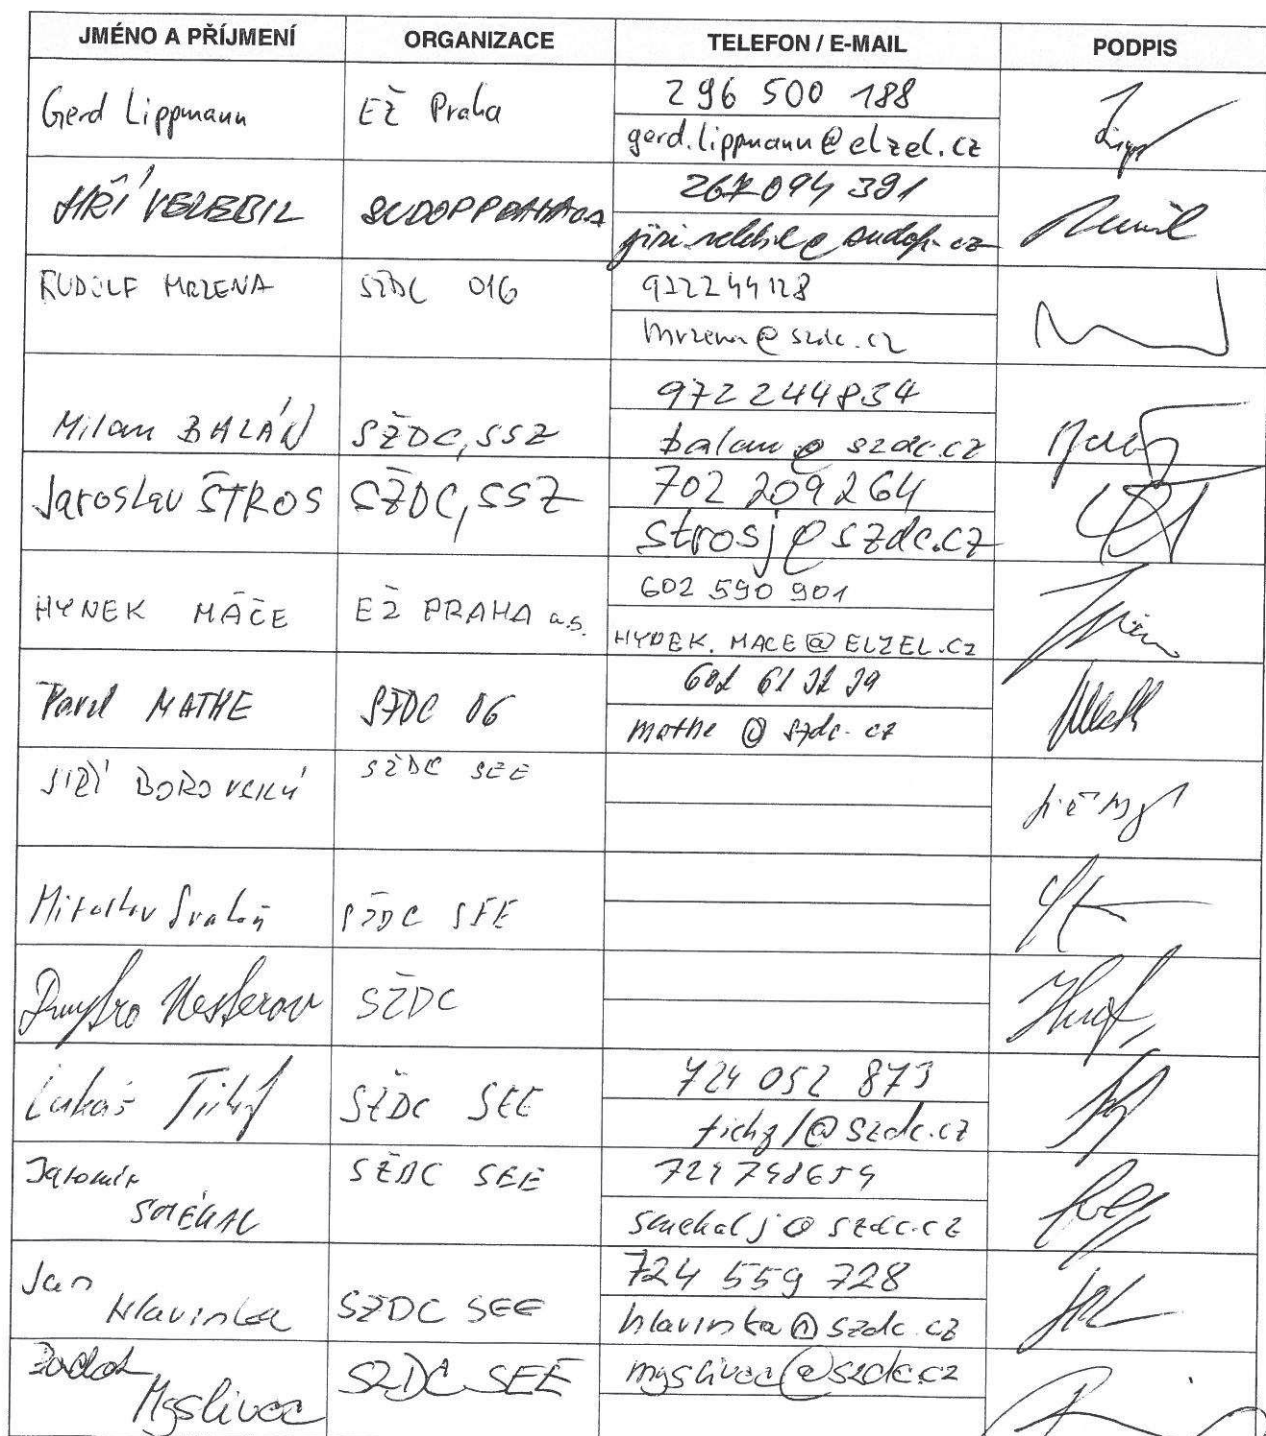 JMÉNO A PŘÍJMENÍ ORGANIZACE TELEFON / E-MAIL PODPIS
Gerd Lippmann EŽ Praha 296 500 188
gerd.lippmann@elzel.cz
JIŘÍ VELEBIL SUDOP PRAHA a.s. 267 094 391
jiri.velebil@sudop.cz
RUDOLF MRZENA SŽDC O16 972244128
mrzena@szdc.cz
Milan BALÁN SŽDC, SSZ 972 244 834
balan@szdc.cz
Jaroslav ŠTROS SŽDC, SSZ 702 209 264
strosj@szdc.cz
HYNEK MÁČE EŽ PRAHA a.s. 602 590 901
HYNEK.MACE@ELZEL.CZ
Pavel MATHE SŽDC 06
mathe@szdc.cz
JIŘÍ BOROVSKÝ SŽDC SEE
Miroslav SŽDC SEE
Dmytro Nesterov SŽDC
Lukáš Tichý SŽDC SEE 724 052 873
tichyl@szdc.cz
Jaromír SŽDC SEE
SMÉKAL smekalj@szdc.cz
Jan 724 559 728
Hlavinka SŽDC SEE hlavinka@szdc.cz
SŽDC SEE myslivec@szdc.cz
Myslivec